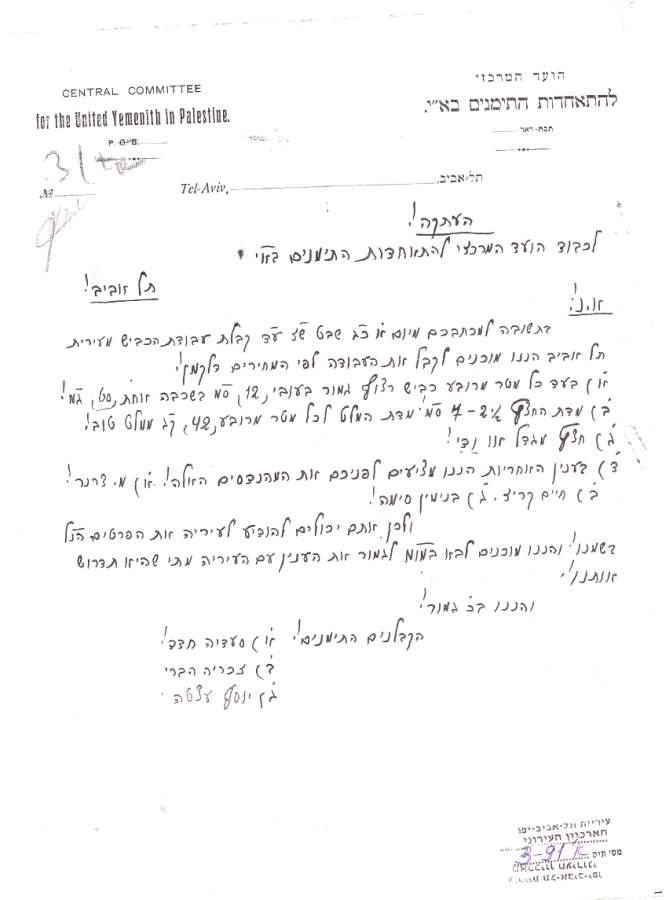 CENTRAL COMMITTEE
for the United Yemenith in Palestine.
P. O. B.
הועד המרכזי
להתאחדות התימנים בא"י.
תבת-דאר
31
№
Tel-Aviv,
תל-אביב,
העתקה!
לכבוד הועד המרכזי להתאחדות התימנים בא"י
תל אביב!
א.נ.!
בתשובה למכתבכם מיום א' כג שבט שצ' ע"ד קבלת עבודת הכביש מעירית
תל אביב הננו מוכנים לקבל את העבודה לפי המחירים דלקמן!
א) בעד כל מטר מרובע כביש רצוף גמור בעובי 12, סמ' בשכבה אחת,
ב) מדת החצץ 2-7 סמ'! מדת המלט לכל מטר מרובע 42, קג ממלט טוב!
ג) חצץ מגדל או
ד) בענין האחריות הננו מציעים לפניכם את המהנדסים האלה! א) מ.
ב) חיים קריצ. ג) בנימין סימה!
ולכן אתם יכולים להודיע לעיריה את הפרטים הנ"ל
בשמנו! והננו מוכנים לבא במו"מ לגמור את הענין עם העיריה מתי שהיא תדרוש
אותנו!
והננו בכ' גמור!
הקבלנים התימנים! א) סעדיה חדד!
ב) זכריה הברי
ג) יוסף
עירית תל-אביב-יפו
הארכיון העירוני
מס' תיק 3-91 א'